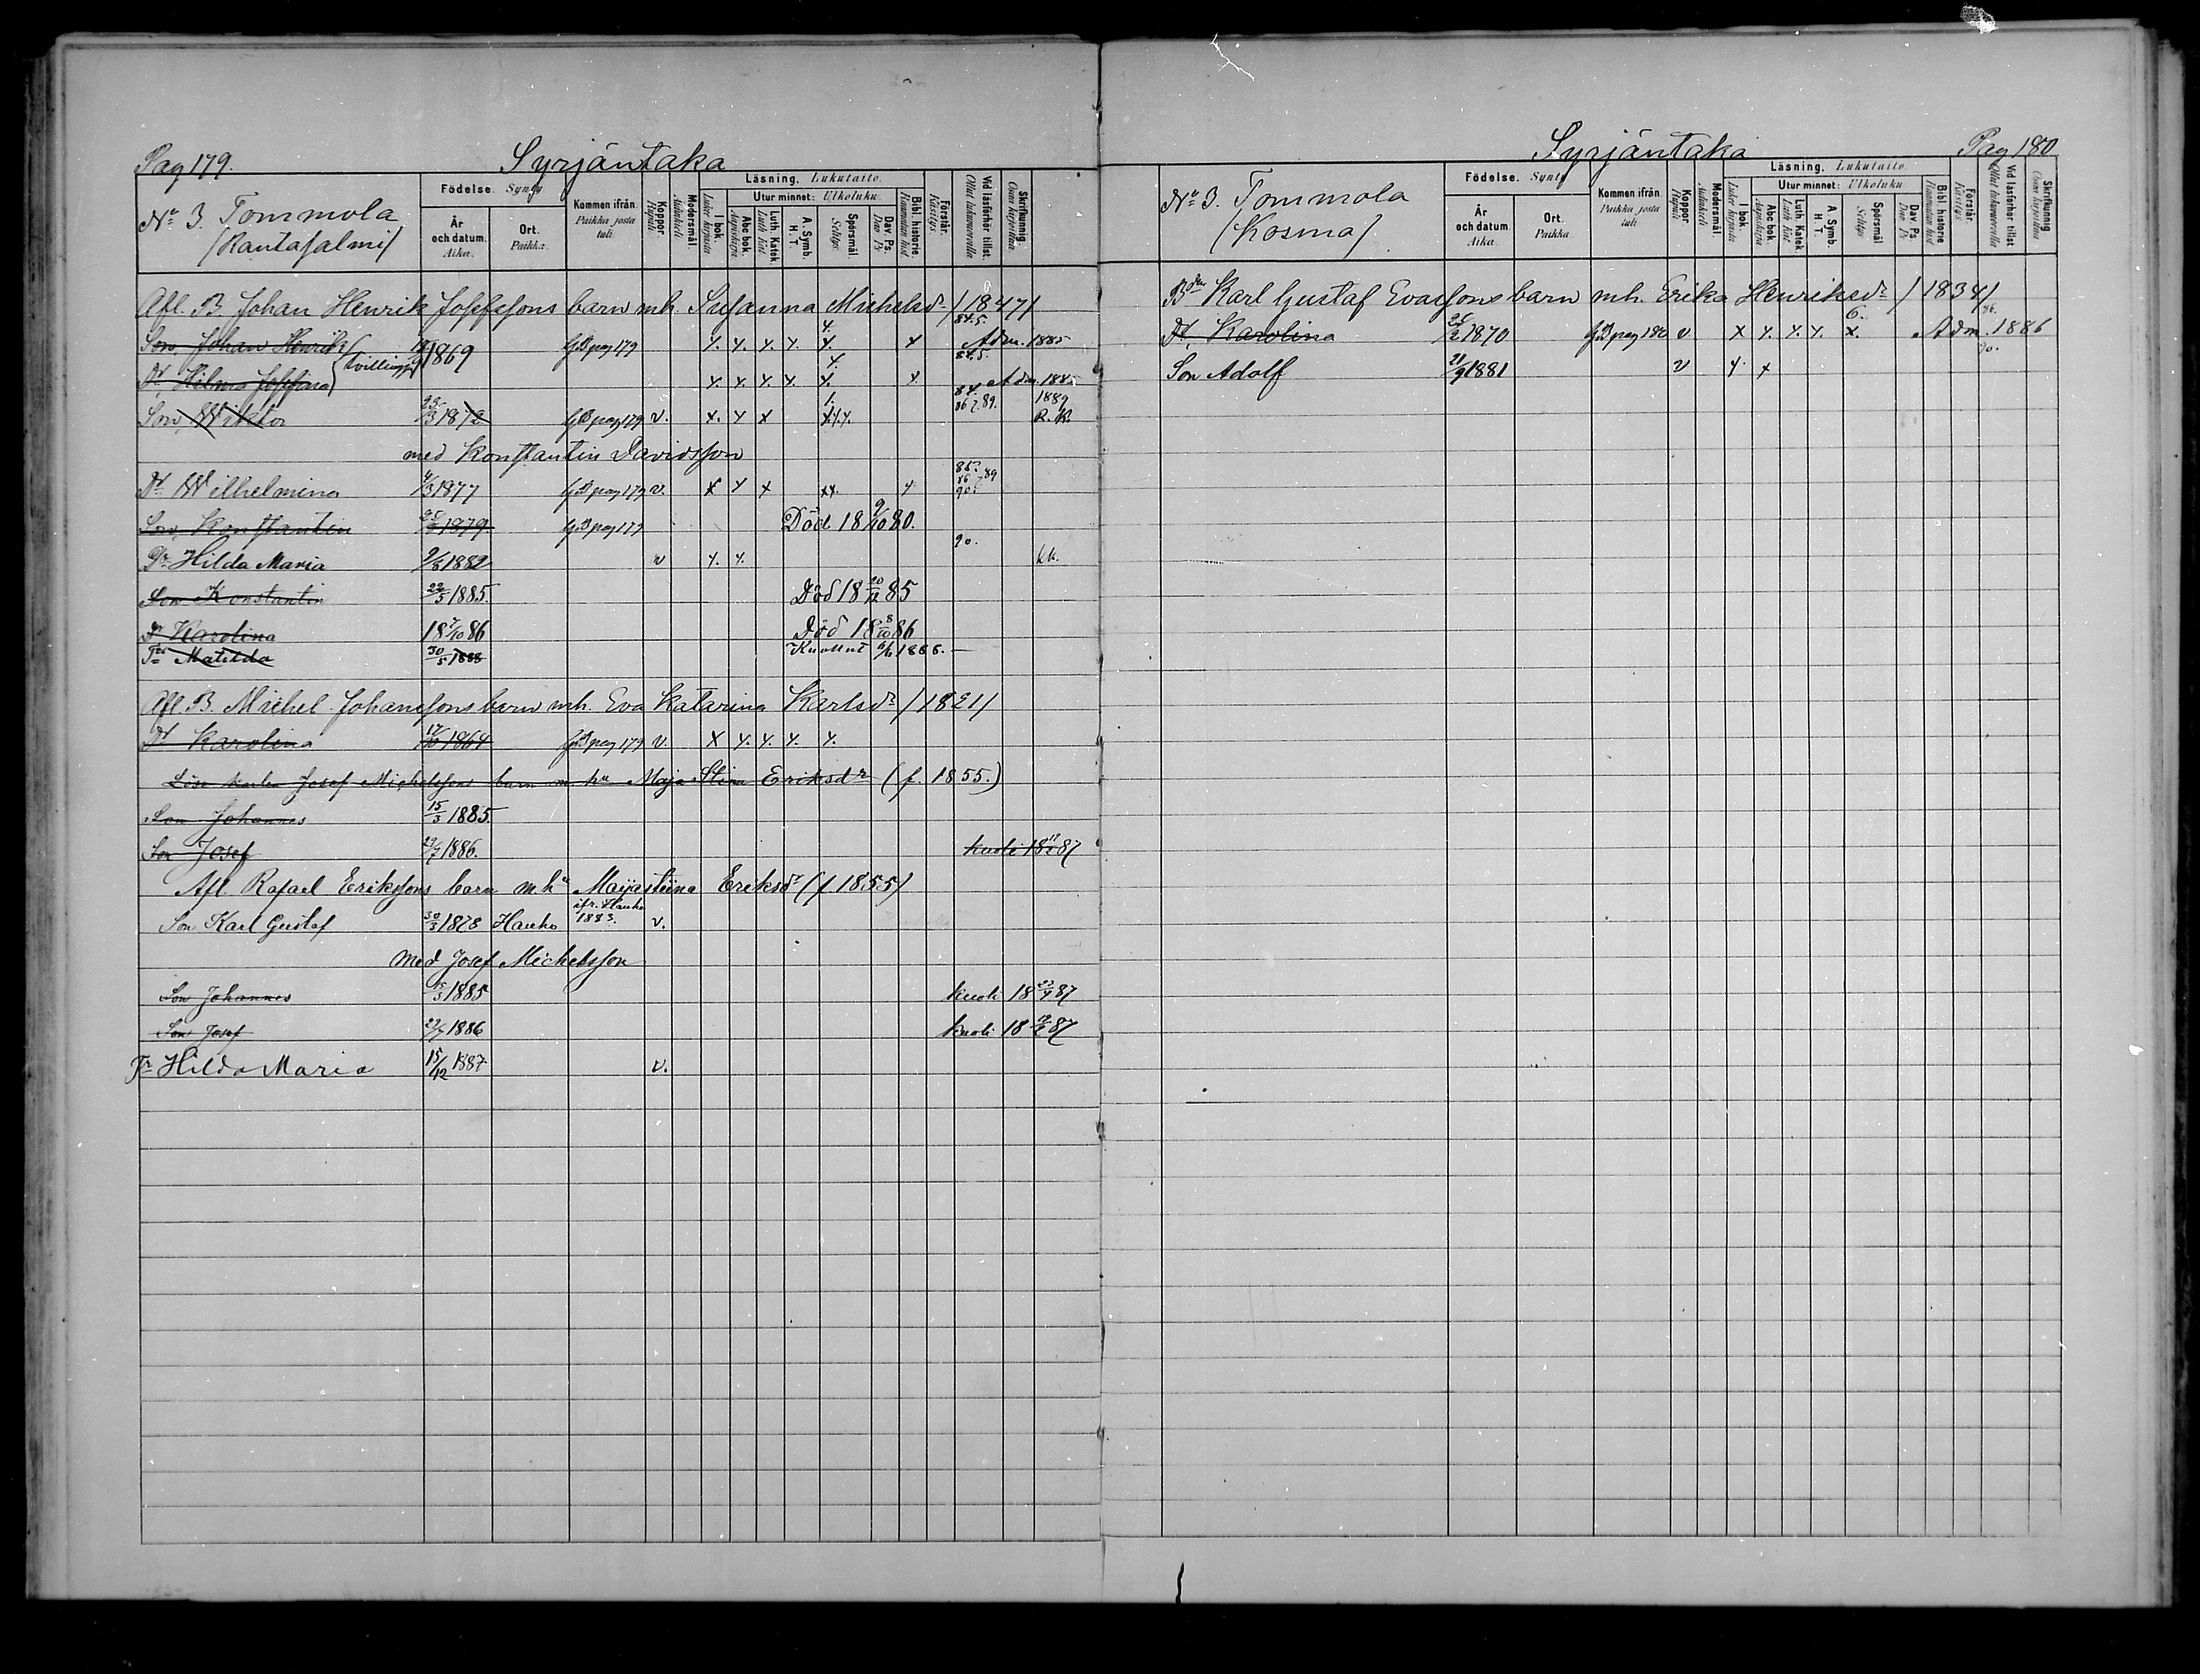 Pag 179.
Syrjäntaka
No 3. Tommola
/Rantasalmi/
Födelse. Synty
År och datum. Aika.
Ort. Paikka.
Kommen ifrån. Paikka, josta tuli.
Koppor. Rupuli
Modersmål. Äidinkieli
Läsning. Lukutaito.
I bok. Lukee kirjasta
Utur minnet: Ulkoluku:
Abc bok. Aapiskirja
Luth. Katek. Luth. Kat.
A. Symb. H. T.
Spörsmål Selitys
Dav. Ps. Dav. Ps.
Bibl. historie. Raamatun hist.
Förstår. Käsitys.
Vid läsförhör tillst. Ollut lukuvuorolla
Skrifkunnig. Osaa kirjoittaa
Afl. B. Johan Henrik Josefssons barn m.h. Susanna Michelsdr /1847/
Son, Johan Henrik } tvillingar 1869 G.B. pag 179 x. x. x. x. 4. x 84.5. Adm. 1885
Dr, Hilma Josefina x. x. x. x. 4. x 84.5. Adm. 1885
Son, Wiktor 1872 G.B. pag 179 v. x. x x 1. 84. 86.7.89. 1889 R.K.
med Konstantin Davidsson
Dr Wilhelmina 4/3 1877 G.B. pag 179 v. x x x xx. x 85. 86 7 89 90.
Son, Konstantin 1879 G.B. pag 179 Död 18 9/10 80.
Dr Hilda Maria 9/8 1882 v x. x. 90. kk.
Son Konstantin 22/5 1885. Död 18 20/12 85
Dr Karolina 18 7/10 86 Död 18 8/10 86
Tr Matilda 30/5 1888 Kuollut 1888.—
Afl. B. Michel Johanssons barn m.h. Eva Katarina Karlsdr /1821/
Dr Karolina 17/10 1864 G.B. pag 179 v. x x. x. x. x.
Lösa karlen Josef Michelssons barn m hu Maja Stina Eriksdr (f. 1855.)
Son Johannes 15/3 1885.
Son Josef 29/7 1886. kuoli 18 87
Afl. Rafael Erikssons barn m.hu Maijastiina Eriksdr (f 1855)
Son Karl Gustaf 30/3 1878 Hauho ifr. Hauho 1883. v.
Med Josef Michelsson
Son Johannes 15/3 1885 kuoli 18 87
Son Josef 29/7 1886 kuoli 18 87
Tr Hilda Maria 15/12 1887 v.
Syrjäntaka
Pag 180
No 3. Tommola
/Kosma/
Födelse. Synty
År och datum. Aika.
Ort. Paikka
Kommen ifrån. Paikka, josta tuli
Koppor Rupuli
Modersmål. Äidinkieli
Läsning. Lukutaito.
I bok. Lukee kirjasta
Utur minnet: Ulkoluku
Abc bok. Aapiskirja
Luth. Katek. Luth Kat
A. Symb. H. T.
Spörsmål Selitys
Dav. Ps. Dav Ps
Bibl. historie Raamatun hist
Förstår. Käsitys
Vid läsförhör tillst Ollut lukuvuorolla
Skrifkunnig Osaa kirjoittaa
Bden Karl Gustaf Evassons barn m.h. Erika Henriksdr /1834/
Dr, Karolina 1870 G.B. pag 180 v x x. x. x. 6. x. 86. Adm. 1886
Son Adolf 21/9 1881 v x x 90.